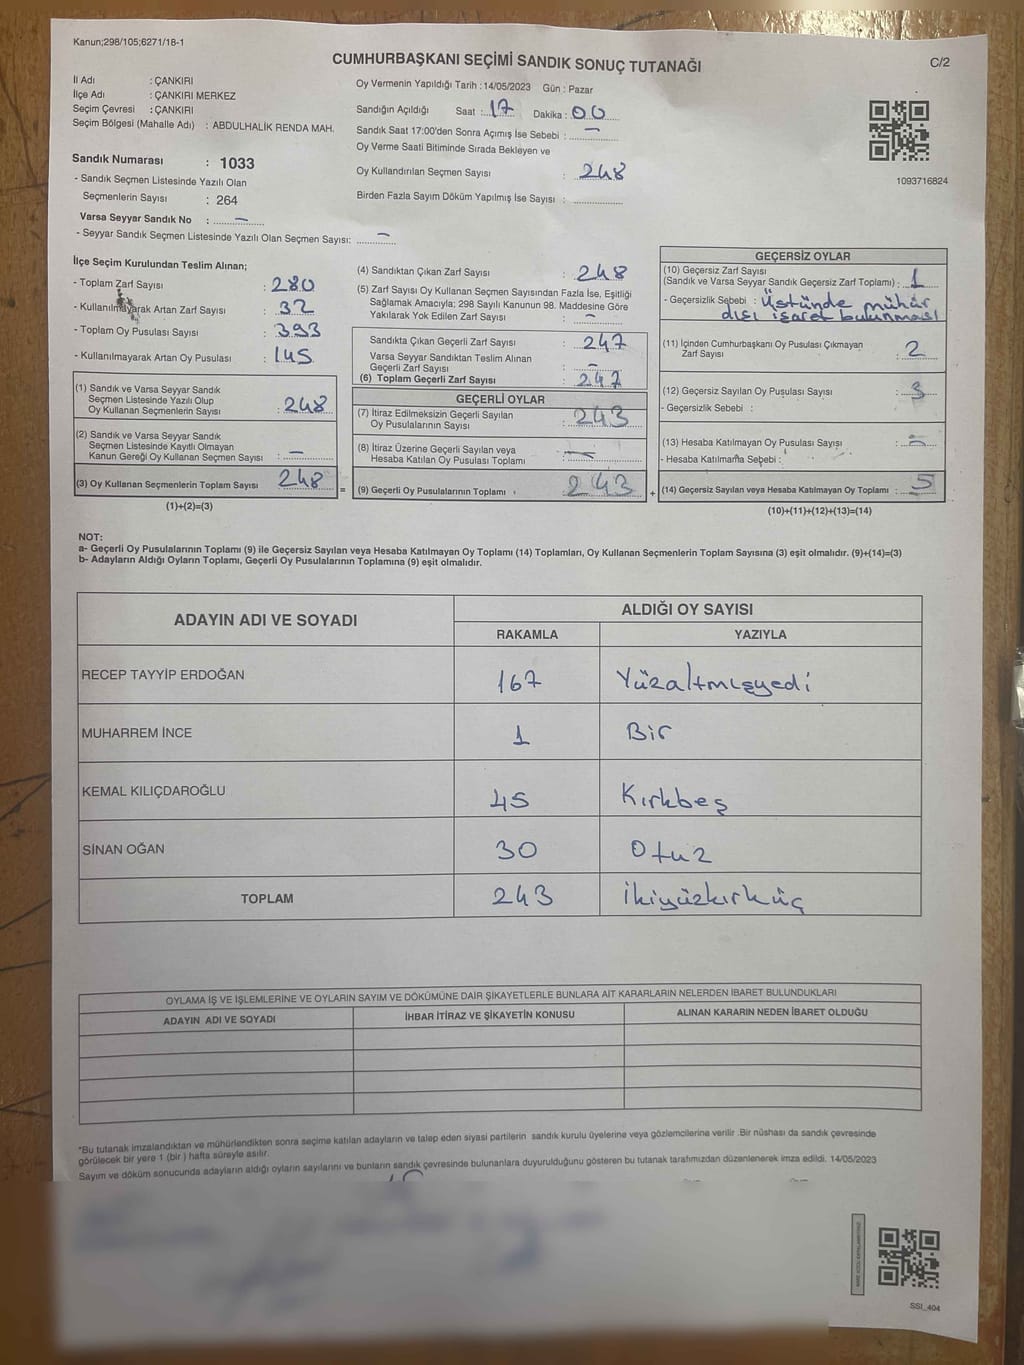 Kanun;298/105;6271/18-1
CUMHURBAŞKANI SEÇİMİ SANDIK SONUÇ TUTANAĞI
C/2
İl Adı : ÇANKIRI
İlçe Adı : ÇANKIRI MERKEZ
Seçim Çevresi : ÇANKIRI
Seçim Bölgesi (Mahalle Adı) : ABDULHALİK RENDA MAH.
Oy Vermenin Yapıldığı Tarih : 14/05/2023 Gün : Pazar
Sandığın Açıldığı Saat : 17 Dakika : 00
Sandık Saat 17:00'den Sonra Açımış İse Sebebi : –
Oy Verme Saati Bitiminde Sırada Bekleyen ve
Oy Kullandırılan Seçmen Sayısı : 248
Birden Fazla Sayım Döküm Yapılmış İse Sayısı :
1093716824
Sandık Numarası : 1033
- Sandık Seçmen Listesinde Yazılı Olan
Seçmenlerin Sayısı : 264
Varsa Seyyar Sandık No : –
- Seyyar Sandık Seçmen Listesinde Yazılı Olan Seçmen Sayısı: –
İlçe Seçim Kurulundan Teslim Alınan;
- Toplam Zarf Sayısı : 280
- Kullanılmayarak Artan Zarf Sayısı : 32
- Toplam Oy Pusulası Sayısı : 393
- Kullanılmayarak Artan Oy Pusulası : 145
(1) Sandık ve Varsa Seyyar Sandık
Seçmen Listesinde Yazılı Olup
Oy Kullanan Seçmenlerin Sayısı : 248
(2) Sandık ve Varsa Seyyar Sandık
Seçmen Listesinde Kayıtlı Olmayan
Kanun Gereği Oy Kullanan Seçmen Sayısı : –
(3) Oy Kullanan Seçmenlerin Toplam Sayısı : 248
(1)+(2)=(3)
(4) Sandıktan Çıkan Zarf Sayısı : 248
(5) Zarf Sayısı Oy Kullanan Seçmen Sayısından Fazla İse, Eşitliği
Sağlamak Amacıyla; 298 Sayılı Kanunun 98. Maddesine Göre
Yakılarak Yok Edilen Zarf Sayısı : –
Sandıkta Çıkan Geçerli Zarf Sayısı : 247
Varsa Seyyar Sandıktan Teslim Alınan
Geçerli Zarf Sayısı : –
(6) Toplam Geçerli Zarf Sayısı : 247
GEÇERLİ OYLAR
(7) İtiraz Edilmeksizin Geçerli Sayılan
Oy Pusulalarının Sayısı : 243
(8) İtiraz Üzerine Geçerli Sayılan veya
Hesaba Katılan Oy Pusulası Toplamı : –
= (9) Geçerli Oy Pusulalarının Toplamı : 243 +
GEÇERSİZ OYLAR
(10) Geçersiz Zarf Sayısı
(Sandık ve Varsa Seyyar Sandık Geçersiz Zarf Toplamı) : 1
- Geçersizlik Sebebi : Üstünde mühür
dışı işaret bulunması
(11) İçinden Cumhurbaşkanı Oy Pusulası Çıkmayan
Zarf Sayısı : 2
(12) Geçersiz Sayılan Oy Pusulası Sayısı : 3
- Geçersizlik Sebebi :
(13) Hesaba Katılmayan Oy Pusulası Sayısı : –
- Hesaba Katılmama Sebebi :
(14) Geçersiz Sayılan veya Hesaba Katılmayan Oy Toplamı : 5
(10)+(11)+(12)+(13)=(14)
NOT:
a- Geçerli Oy Pusulalarının Toplamı (9) ile Geçersiz Sayılan veya Hesaba Katılmayan Oy Toplamı (14) Toplamları, Oy Kullanan Seçmenlerin Toplam Sayısına (3) eşit olmalıdır. (9)+(14)=(3)
b- Adayların Aldığı Oyların Toplamı, Geçerli Oy Pusulalarının Toplamına (9) eşit olmalıdır.
ADAYIN ADI VE SOYADI ALDIĞI OY SAYISI
RAKAMLA YAZIYLA
RECEP TAYYİP ERDOĞAN 167 Yüzaltmışyedi
MUHARREM İNCE 1 Bir
KEMAL KILIÇDAROĞLU 45 Kırkbeş
SİNAN OĞAN 30 Otuz
TOPLAM 243 İkiyüzkırküç
OYLAMA İŞ VE İŞLEMLERİNE VE OYLARIN SAYIM VE DÖKÜMÜNE DAİR ŞİKAYETLERLE BUNLARA AİT KARARLARIN NELERDEN İBARET BULUNDUKLARI
ADAYIN ADI VE SOYADI İHBAR İTİRAZ VE ŞİKAYETİN KONUSU ALINAN KARARIN NEDEN İBARET OLDUĞU
*Bu tutanak imzalandıktan ve mühürlendikten sonra seçime katılan adayların ve talep eden siyasi partilerin sandık kurulu üyelerine veya gözlemcilerine verilir .Bir nüshası da sandık çevresinde
görülecek bir yere 1 (bir ) hafta süreyle asılır.
Sayım ve döküm sonucunda adayların aldığı oyların sayılarını ve bunların sandık çevresinde bulunanlara duyurulduğunu gösteren bu tutanak tarafımızdan düzenlenerek imza edildi. 14/05/2023
SSI_404